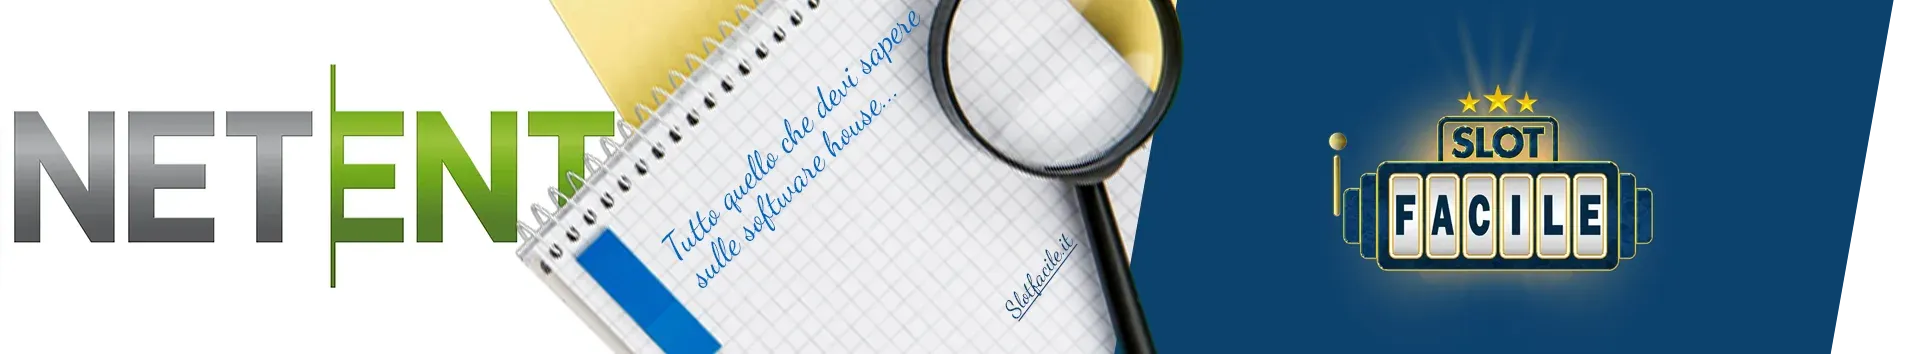 NETENT
Tutto quello che devi sapere
sulle software house...
Slotfacile.it
SLOT
FACILE